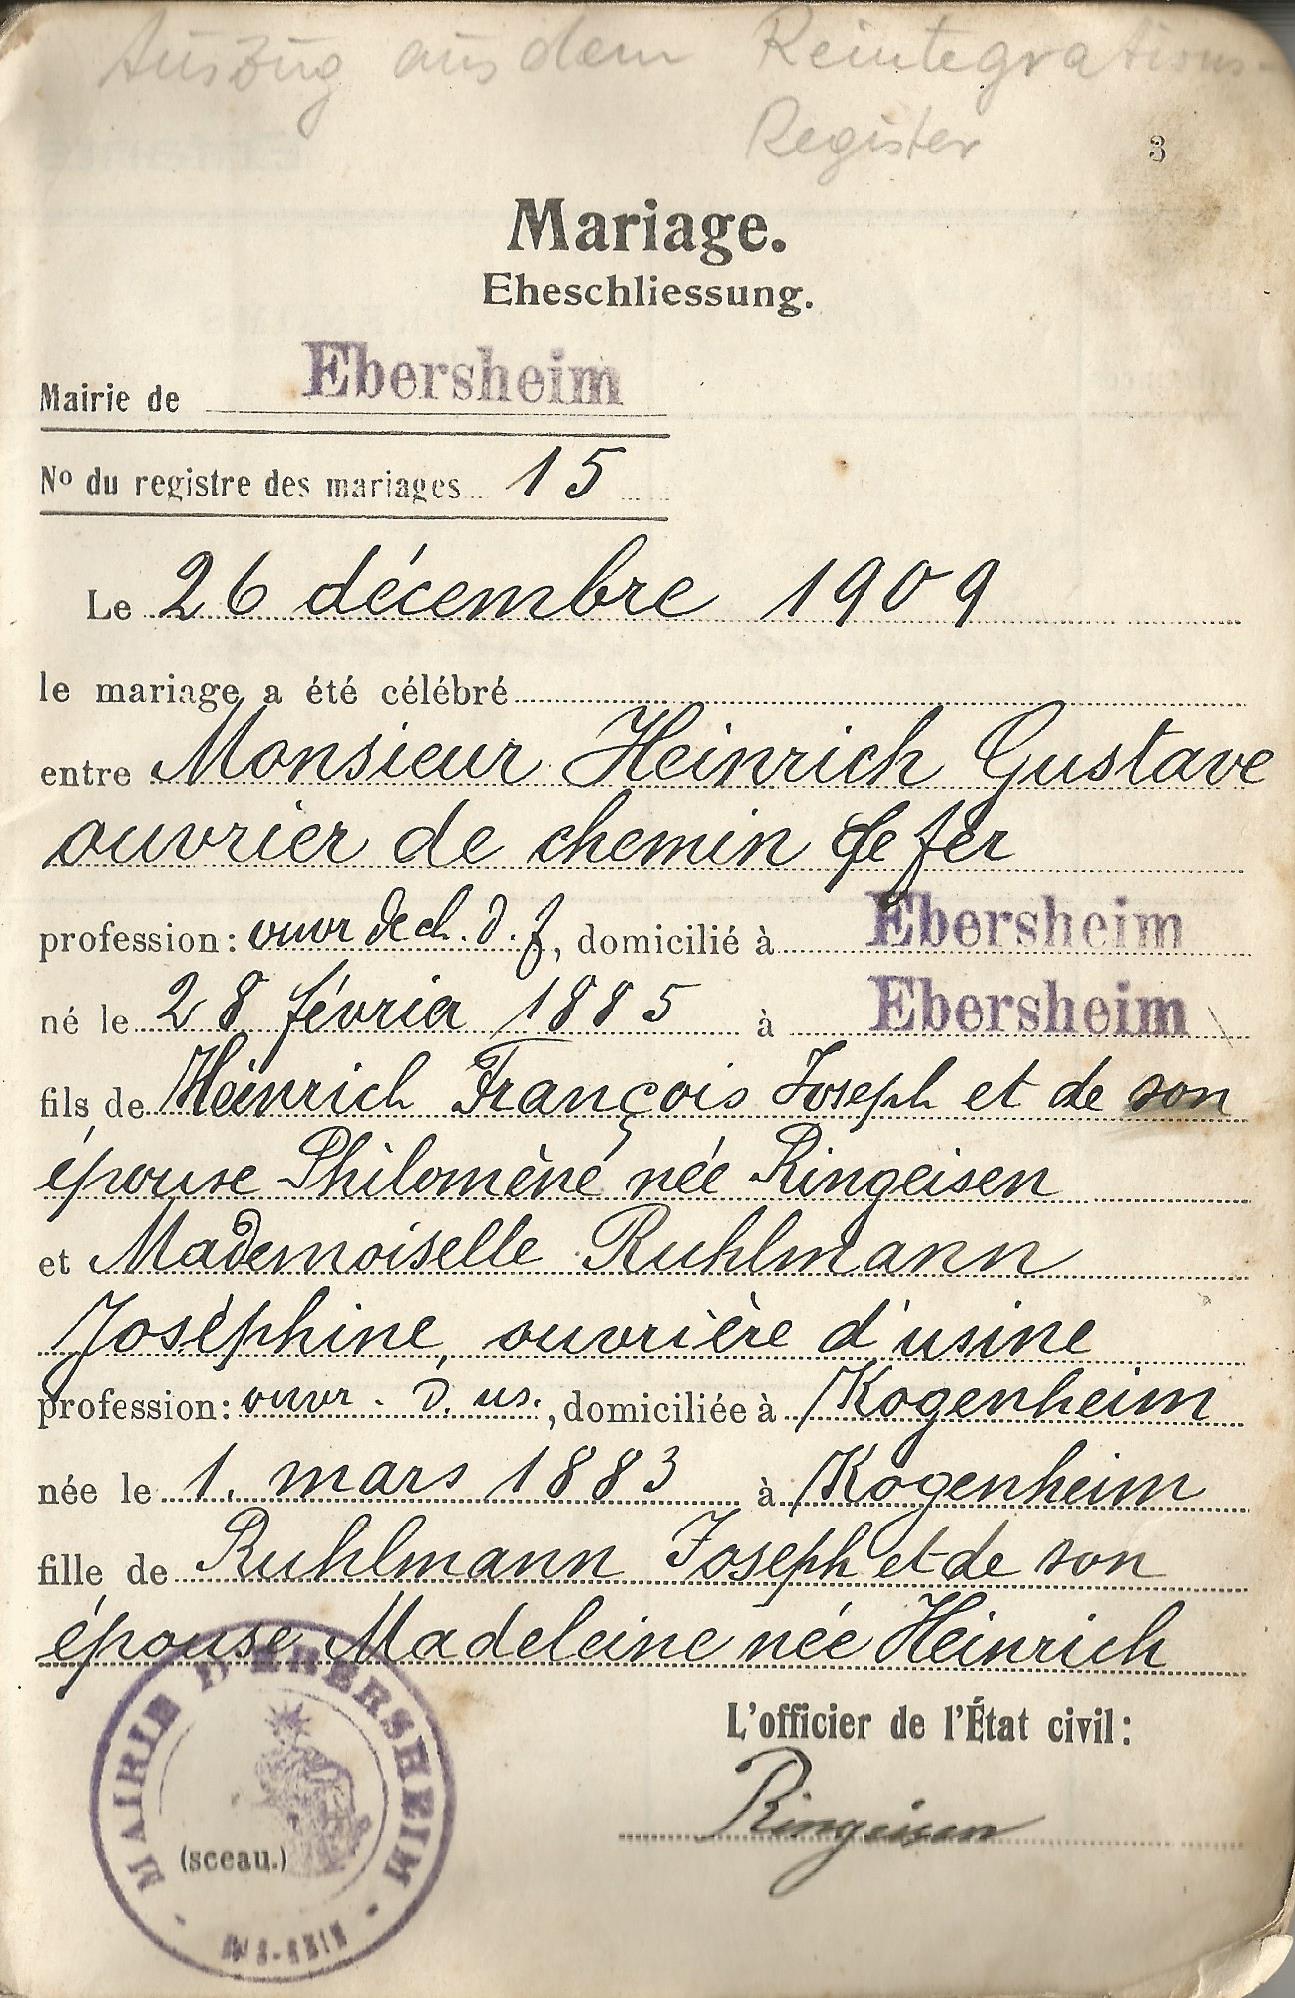 Auszug aus dem Reintegrations-
Register
3
Mariage.
Eheschliessung.
Mairie de Ebersheim
Nº du registre des mariages 15
Le 26 décembre 1909
le mariage a été célébré
entre Monsieur Heinrich Gustave
ouvrier de chemin de fer
profession: ouvr de ch. d. f, domicilié à Ebersheim
né le 28 février 1885 à Ebersheim
fils de Heinrich François Joseph et de son
épouse Philomène née Ringeisen
et Mademoiselle Ruhlmann
Joséphine, ouvrière d'usine
profession: ouvr. d. us., domiciliée à Kogenheim
née le 1. mars 1883 à Kogenheim
fille de Ruhlmann Joseph et de son
épouse Madeleine née Heinrich
L'officier de l'État civil:
Ringeisen
MAIRIE D'EBERSHEIM
(sceau.)
BAS-RHIN